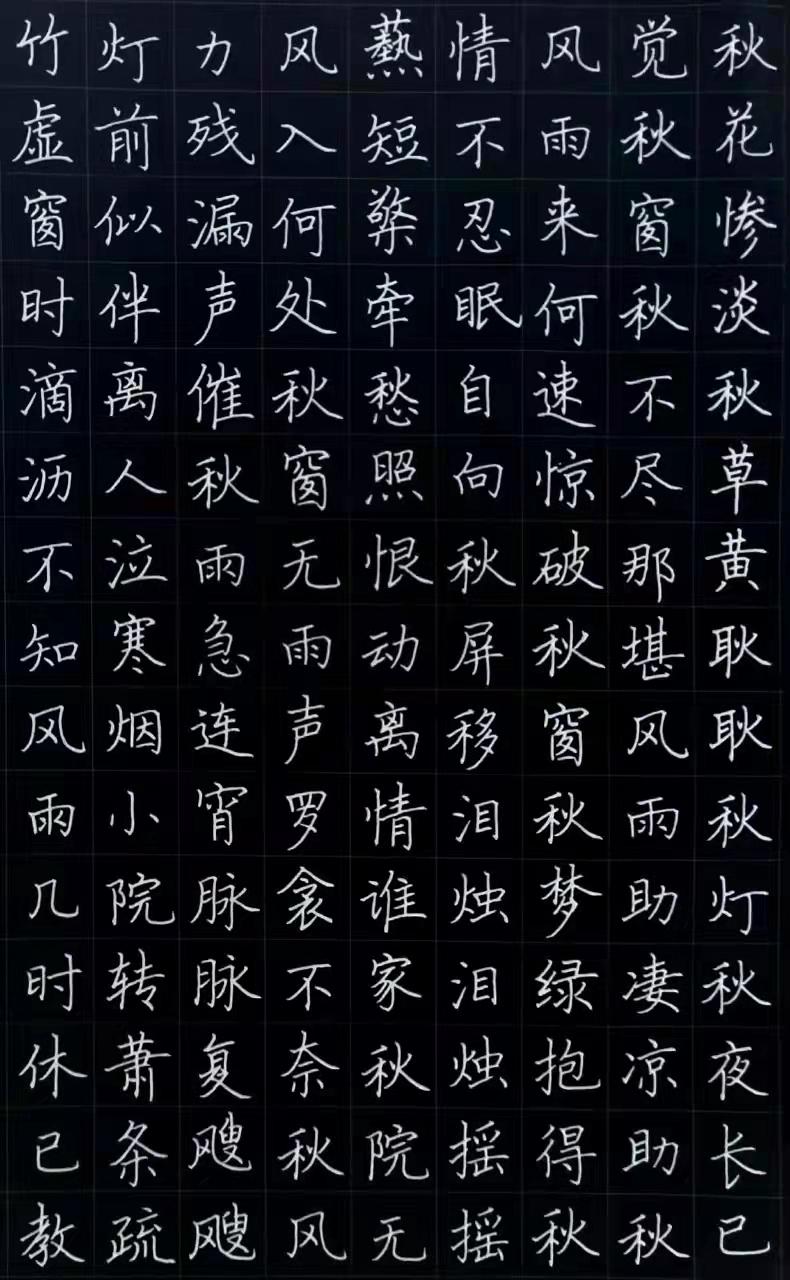 秋花惨淡秋草黄耿耿秋灯秋夜长已
觉秋窗秋不尽那堪风雨助凄凉助秋
风雨来何速惊破秋窗秋梦绿抱得秋
情不忍眠自向秋屏移泪烛泪烛摇摇
爇短檠牵愁照恨动离情谁家秋院无
风入何处秋窗无雨声罗衾不奈秋风
力残漏声催秋雨急连宵脉脉复飕飕
灯前似伴离人泣寒烟小院转萧条疏
竹虚窗时滴沥不知风雨几时休已教